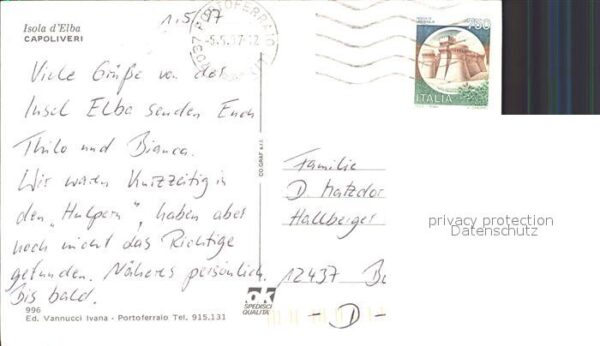 Isola d'Elba
CAPOLIVERI
1.5.97
PORTOFERRAIO
-5.5.97-12
750
ITALIA
Viele Grüße von der
Insel Elba senden Euch
Thilo und Bianca.
Wir waren kurzzeitig in
den „Hulpern", haben aber
noch nicht das Richtige
gefunden. Näheres persönlich.
Bis bald.
CO.GRAF s.r.l.
Familie
D. Matzdor
Hallberger
12437 Be
- D -
privacy protection
Datenschutz
ok
SPEDISCI
QUALITÀ
996
Ed. Vannucci Ivana - Portoferraio Tel. 915.131